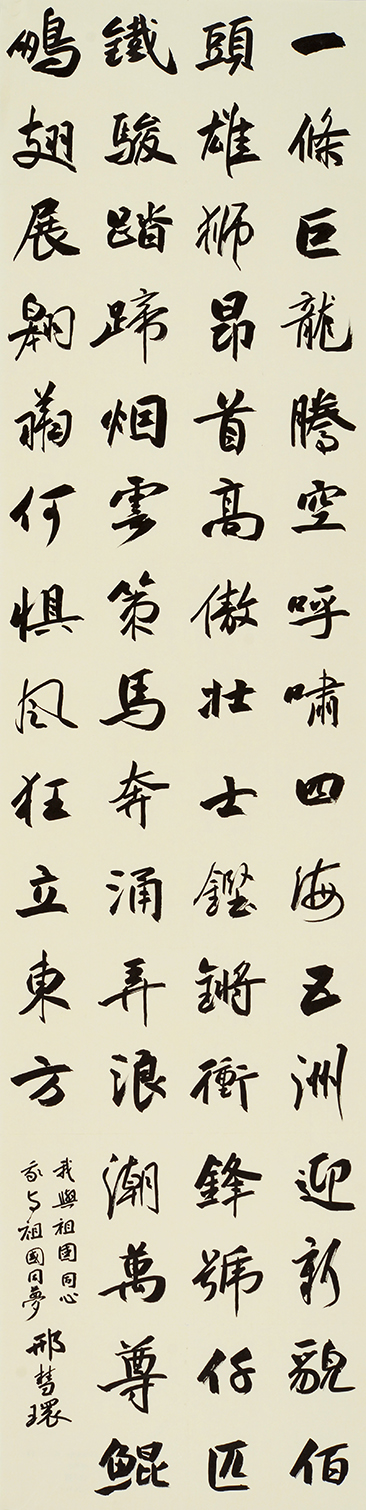 一條巨龍騰空呼嘯四海五洲迎新貌佰
頭雄獅昂首高傲壯士鏗鏘衝鋒號仟匹
鐵駿踏蹄烟雲策馬奔涌弄浪潮萬尊鯤
鵬翅展翱翔何惧風狂立東方
我與祖國同心
我与祖國同夢 邢慧環